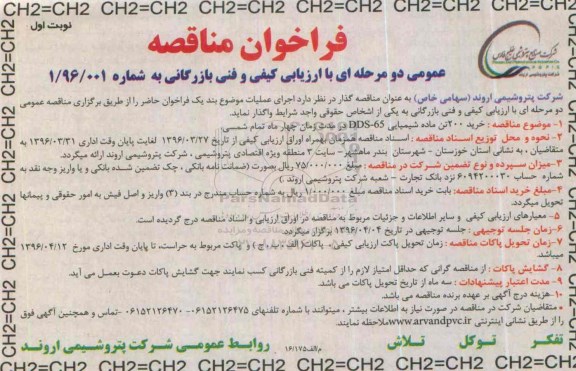 CH2=CH2 CH2=CH2 CH2=CH2 CH2=CH2 CH2=CH2 CH2=CH2
نوبت اول
فراخوان مناقصه
عمومی دو مرحله ای با ارزیابی کیفی و فنی بازرگانی به شماره ۱/۹۶/۰۰۱
شرکت پتروشیمی اروند (سهامی خاص) به عنوان مناقصه گذار در نظر دارد اجرای عملیات موضوع بند یک فراخوان حاضر را از طریق برگزاری مناقصه عمومی
دو مرحله ای با ارزیابی کیفی و فنی بازرگانی به یکی از اشخاص حقوقی واجد شرایط واگذار نماید.
۱- موضوع مناقصه : خرید ۲۰۰تن ماده شیمیایی DDS-65 در مدت زمان چهار ماه تمام شمسی.
۲- نحوه و محل توزیع اسناد مناقصه : اسناد مناقصه همزمان بهمراه اوراق ارزیابی کیفی از تاریخ ۱۳۹۶/۰۳/۲۷ لغایت پایان وقت اداری ۱۳۹۶/۰۳/۳۱ به
متقاضیان ، به نشانی استان خوزستان - شهرستان بندر ماهشهر - سایت ۳ منطقه ویژه اقتصادی پتروشیمی ، شرکت پتروشیمی اروند ارائه میگردد.
۳- میزان سپرده و نوع تضمین شرکت در مناقصه : مبلغ ۷۵۰/۰۰۰/۰۰۰ ریال بصورت (ضمانت نامه بانکی ، چک تضمین شده بانکی و یا واریز وجه نقد به
شماره حساب ۶۰۹۴۲۰۰۰۳۰ نزد بانک تجارت - شعبه شرکت پتروشیمی اروند )
۴- مبلغ خرید اسناد مناقصه: بابت خرید اسناد مناقصه مبلغ ۱/۰۰۰/۰۰۰ ریال به شماره حساب مندرج در بند (۳) واریز و اصل فیش به امور حقوقی و پیمانها
تحویل میگردد.
۵- معیارهای ارزیابی کیفی و سایر اطلاعات و جزئیات مربوط به مناقصه در اوراق ارزیابی و اسناد مناقصه درج گردیده است.
۶-زمان جلسه توجیهی : جلسه توجیهی در تاریخ ۱۳۹۶/۰۴/۰۴ برگزار میگردد.
۷- زمان تحویل پاکات مناقصه : زمان تحویل پاکت ارزیابی کیفی و پاکات (الف ، ب ، ج ) و پاکت مربوط به حراست، تا پایان وقت اداری مورخ ۱۳۹۶/۰۴/۱۲
میباشد
۸- گشایش پاکات : از مناقصه گرانی که حداقل امتیاز لازم را از کمیته فنی بازرگانی کسب نمایند جهت گشایش پاکات دعوت بعمل می آید.
۹- مدت اعتبار پیشنهادات : سه ماه از تاریخ تحویل پاکات می باشد.
۱۰-هزینه درج آگهی بر عهده برنده مناقصه می باشد.
* متقاضیان شرکت در مناقصه در صورت نیاز به اطلاعات بیشتر ، میتوانند با شماره تلفنهای ۰۶۱۵۲۱۲۶۴۷۵- ۰۶۱۵۲۱۲۶۴۷۰ -تماس و همچنین آگهی فوق
را از طریق نشانی اینترنتی www.arvandpvc.irملاحظه نمایند.
تفکر توکل تلاش
روابط عمومی شرکت پتروشیمی اروند
م/الف۱۶/۱۷۵
CH2=CH2 CH2=CH2 CH2=CH2 CH2=CH2 CH2=CH2 CH2=CH2